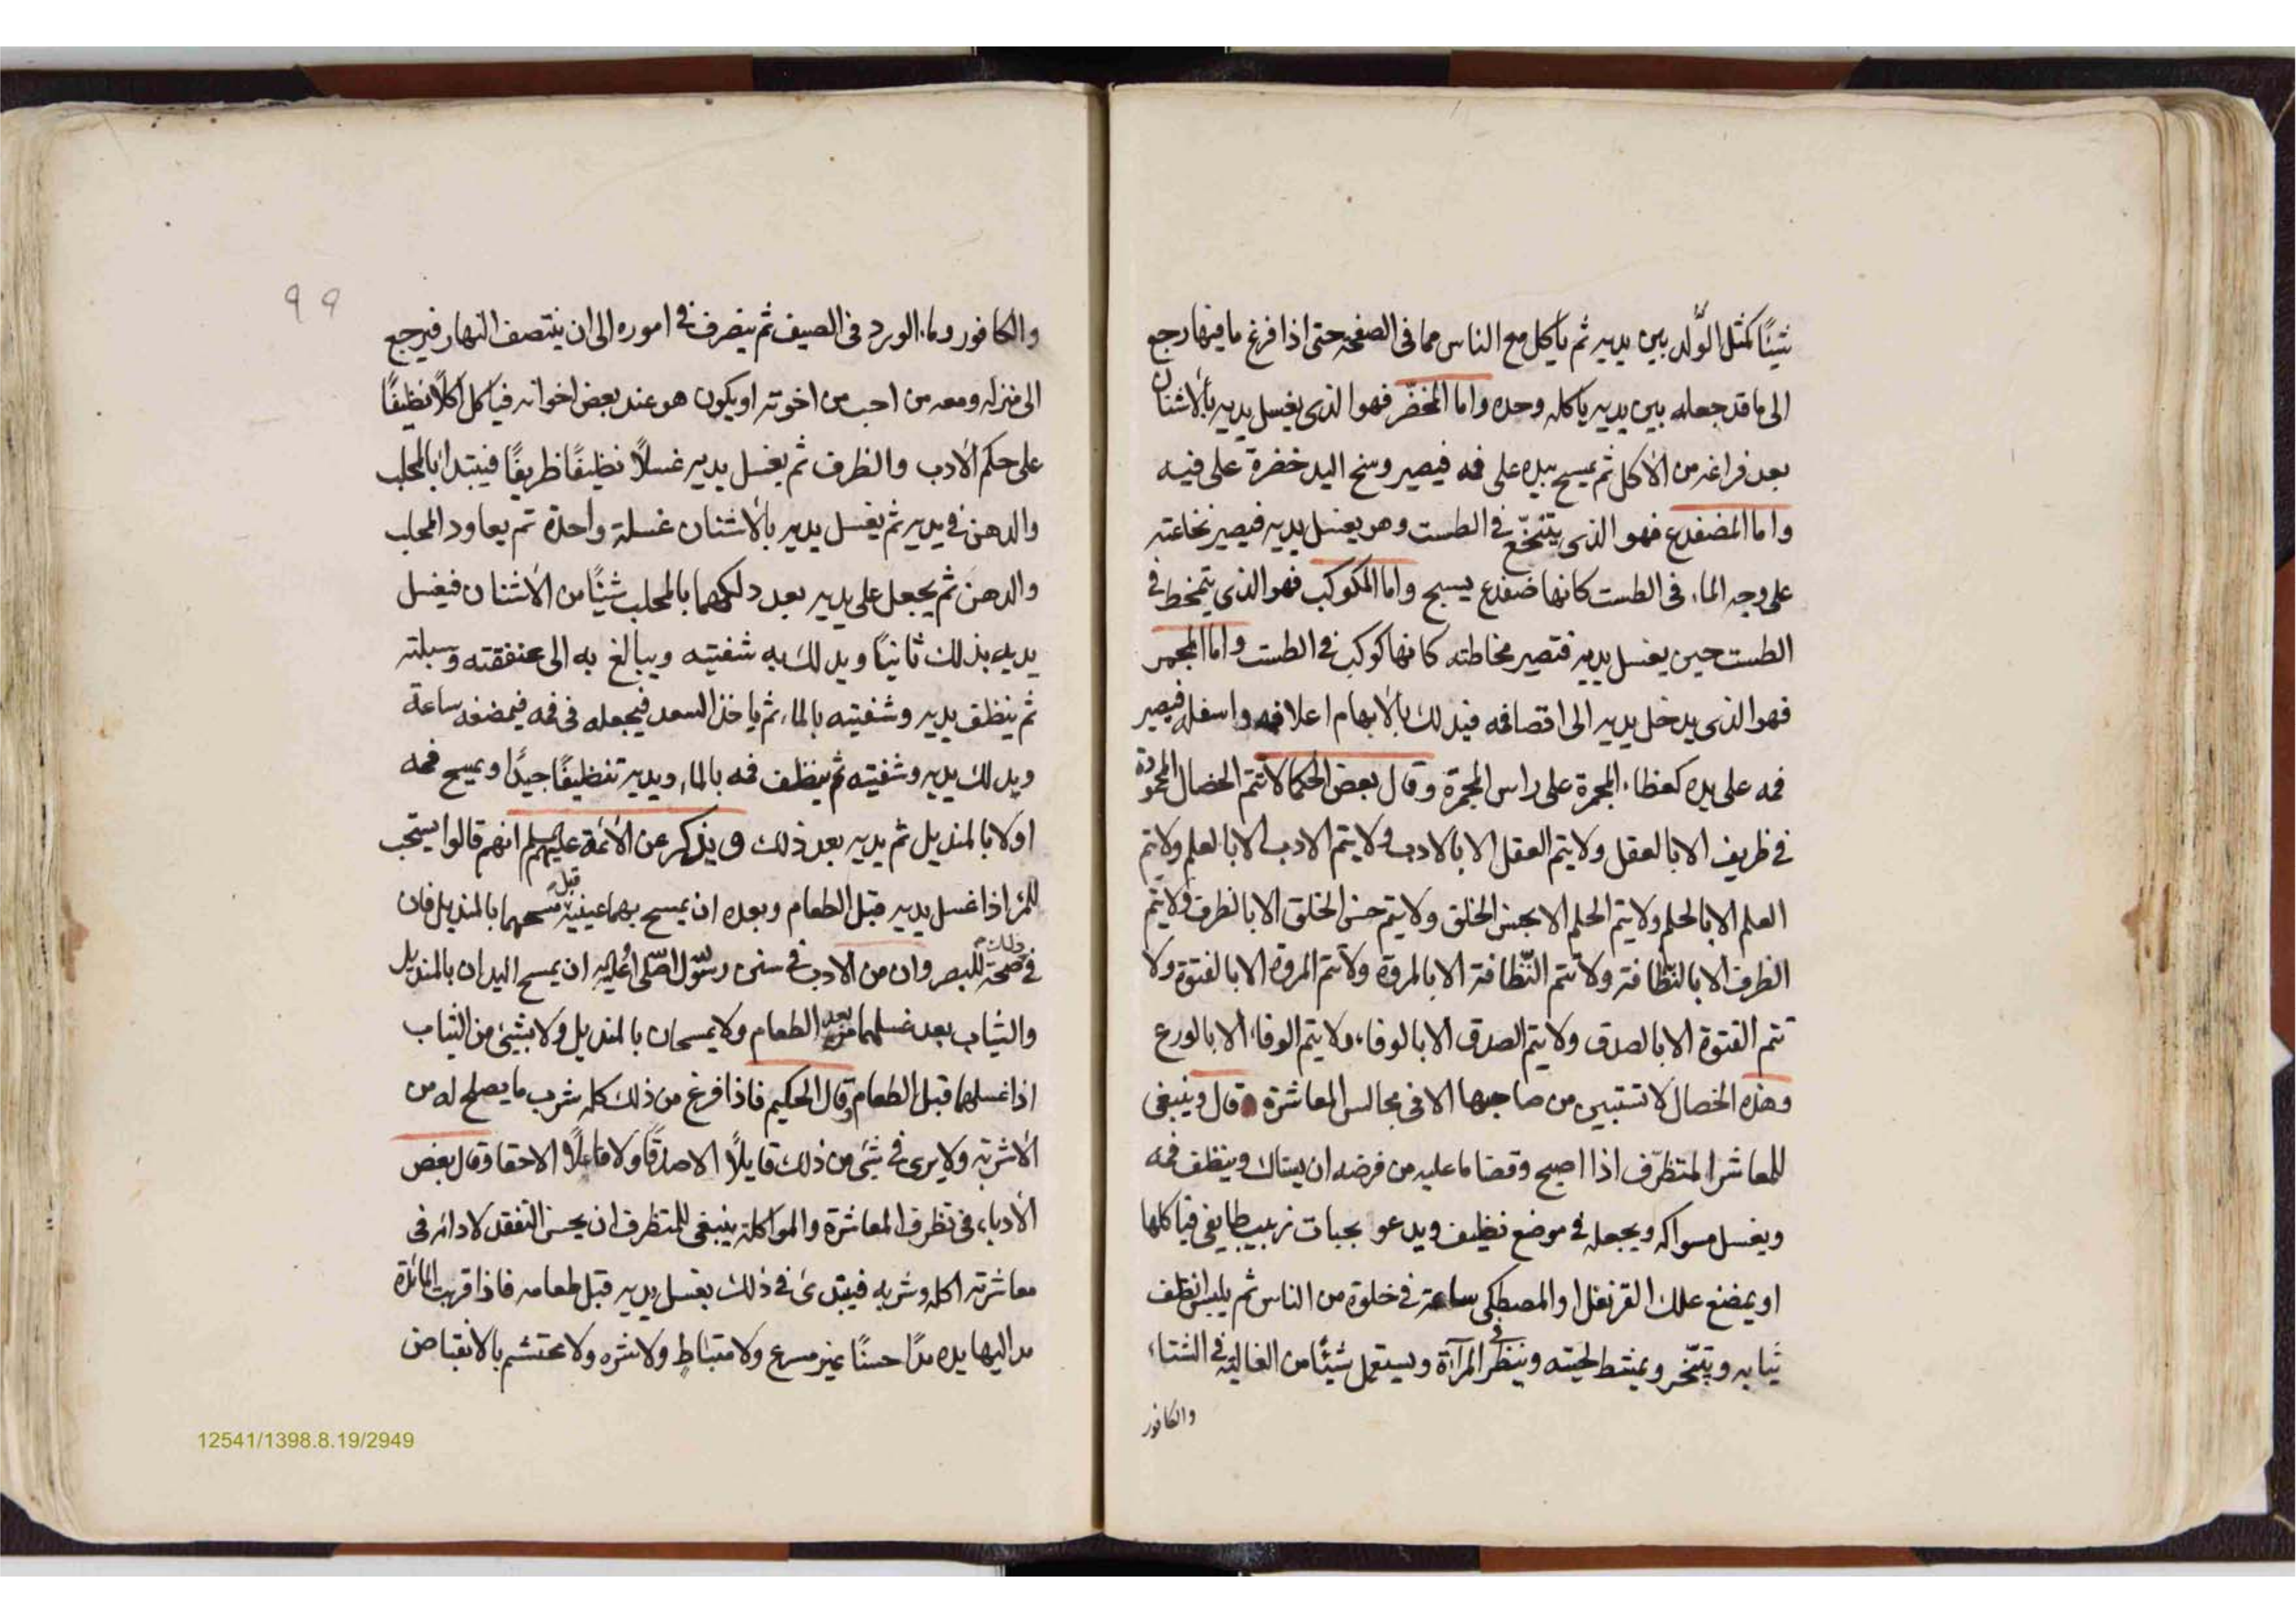 شيئًا كمثل الوَّلد بين يديه ثم ياكل مع الناس مما فى الصفحة حتى اذا فرغ ما فيها رجع
الى ما قد جعله بين يديه ياكله وحده واما المخضّر فهو الذى يغسل يديه بألاشنان
بعد فراغه من الأكل ثم يمسح بيده على فمه فيصير وسخ اليد خضرة على فيه
واما المضفدع فهو الذى يتنخّع فى الطست وهو يغسل يديه فيصير نخاعته
على وجه الماء فى الطست كانها ضفدع يسبح واما المكوكب فهو الذى يتمخط فى
الطست حين يغسل يديه فتصير مخاطته كانها كوكب فى الطست واما المجمر
فهو الذى يدخل يديه الى اقصا فمه فيدلك بألابهام اعلا فمه واسفله فيصير
فمه على يده كغطاء المجمرة على راس المجمرة وقال بعض الحكما لا تتم الخصال المحمودة
فى ظريف الا بالعقل ولا يتم العقل الا بالادب ولا يتم الادب الا بالعلم ولا يتم
العلم الا بالحلم ولا يتم الحلم الا بحسن الخلق ولا يتم حسن الخلق الا بالظرف ولا يتم
الظرف الا بالنّظافة ولا تتم النّظافة الا بالمروة ولا تتم المروة الا بالفتوة ولا
تتم الفتوة الا بالصدق ولا يتم الصدق الا بالوفاء ولا يتم الوفاء الا بالورع
وهذه الخصال لا تستبين من صاحبها الا فى مجالس المعاشرة قال وينبغى
للمعاشر المتظرّف اذا اصبح وقضا ما عليه من فرضه ان يستاك وينظف فمه
ويغسل مسواكه ويجعله فى موضع نظيف ويدعو بحبات زبيب طايفى فياكلها
او يمضغ علك القرنفل او المصطكى ساعة فى خلوة من الناس ثم يلبس انظف
ثيابه ويتبّخر ويمشط لحيته وينظر فى المرآة ويستعمل شيئًا من الغالية فى الشتاء
والكافور
99
والكافور وماء الورد فى الصيف ثم ينصرف فى اموره الى ان ينتصف النهار فيرجع
الى منزله ومعه من احب من اخوته او يكون هو عند بعض اخوانه فياكل اكلًا نظيفًا
على حكم الأدب والظرف ثم يغسل يديه غسلًا نظيفًا ظريفًا فيبتدأ بالمحلب
والدهن فى يديه ثم يغسل يديه بألاشنان غسلة واحدة ثم يعاود المحلب
والدهن ثم يجعل على يديه بعد دلكهما بالمحلب شيئًا من الأشنان فيغسل
يديه بذلك ثانيًا ويدلك به شفتيه ويبالغ به الى عنفقته وسبلته
ثم ينظف يديه وشفتيه بالماء ثم ياخذ السعد فيجعله فى فمه فيمضغه ساعة
ويدلك يديه وشفتيه ثم ينظف فمه بالماء ويديه تنظيفًا جيدًا ويمسح فمه
اولا بالمنديل ثم يديه بعد ذلك ويذكر عن الأئمة عليهم السلم انهم قالوا يستحب
للمرء اذا غسل يديه قبل الطعام وبعده ان يمسح بهما عينيه قبل مسحهما بالمنديل فان
فى ذلك صحة للبصر وان من الادب فى سنن رسول الله صلى الله عليه ان يمسح اليدان بالمنديل
والثياب بعد غسلهما بعد الطعام ولا يمسحان بالمنديل ولا بشيئ من الثياب
اذا غسلهما قبل الطعام وقال الحكيم فاذا فرغ من ذلك كله شرب ما يصلح له من
الأشربة ولا يرى فى شئ من ذلك قايلًا الا صدقًا ولا فاعلًا الا حقا وقال بعض
الأدباء فى تظرف المعاشرة والمواكلة ينبغى للمتظرف ان يحسن التفقد لادائه فى
معاشرته اكله وشربه فيبتدئ فى ذلك بغسل يديه قبل طعامه فاذا قربت المائدة
مد اليها يده مدًا حسنًا غير مسرع ولا متباطٍ ولا شره ولا محتشم بالانقباض
12541/1398.8.19/2949